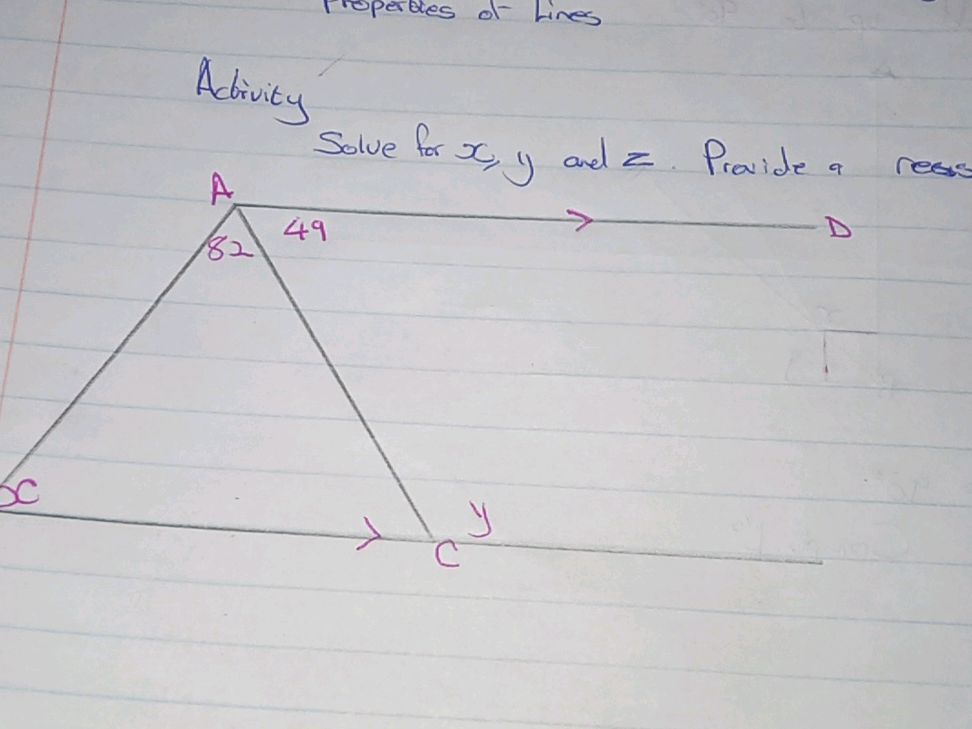 Properties of Lines
Activity
Solve for x, y and z. Provide a
A
49
D
82
x
y
C